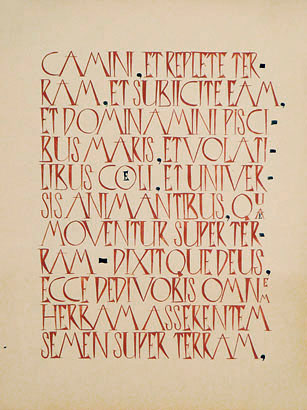 CAMINI, ET REPLETE TER-
RAM, ET SUBIICITE EAM,
ET DOMINAMINI PISCI-
BUS MARIS, ET VOLATI-
LIBUS CŒLI, ET UNIVER-
SIS ANIMANTIBUS, QUÆ
MOVENTUR SUPER TER-
RAM - DIXITQUE DEUS,
ECCE DEDI VOBIS OMNEM
HERBAM ASSERENTEM
SEMEN SUPER TERRAM,